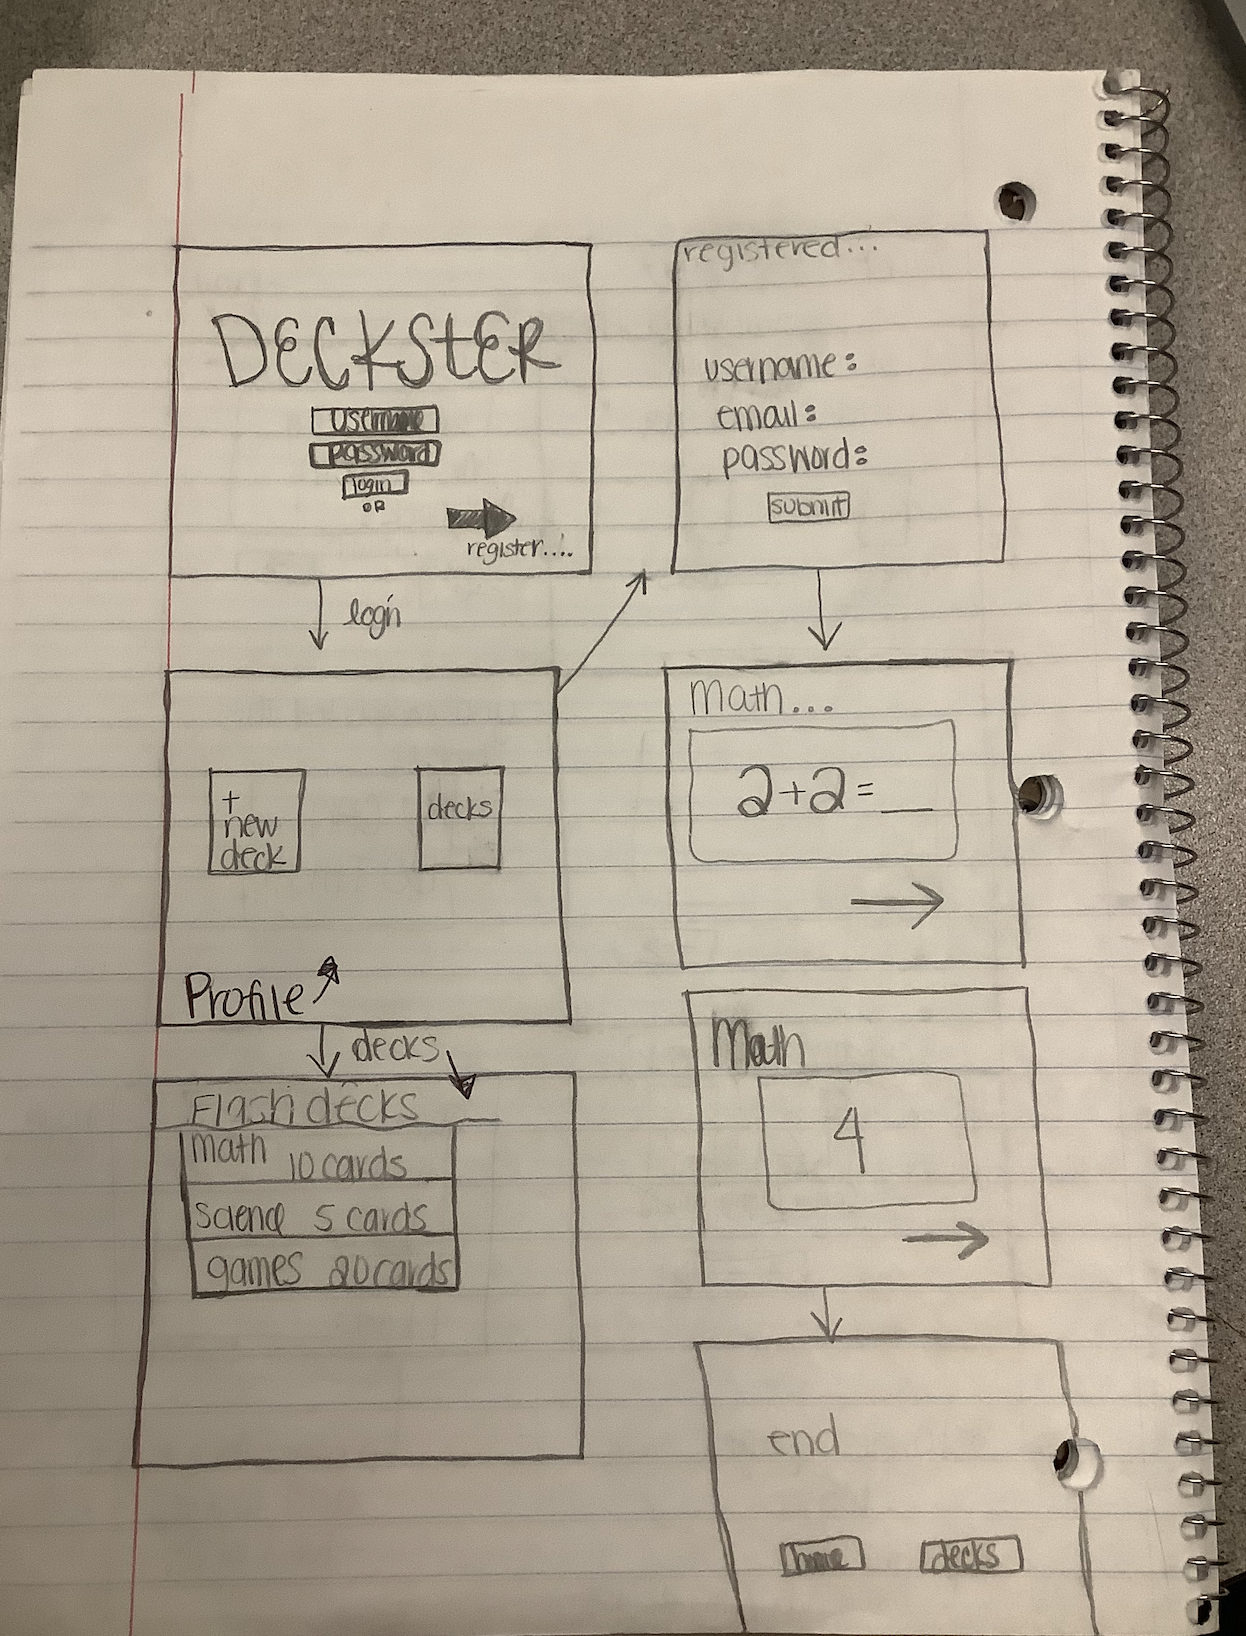 DECKStER
username
password
login
OR
register....
login
+
new
deck
decks
Profile
decks
Flash decks
math 10 cards
science 5 cards
games 20 cards
registered...
username:
email:
password:
submit
Math...
2+2=__
Math
4
end
home
decks